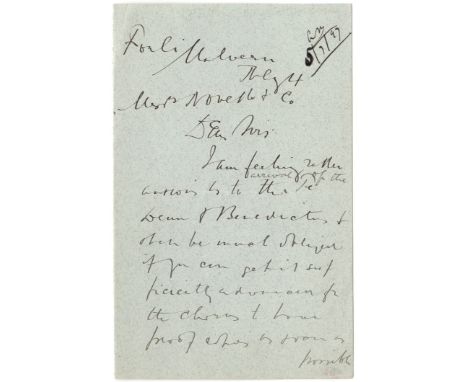 5/7/97
Forli
Malvern
July 4
Messrs Novello & Co
Dear Sirs
I am feeling rather
anxious as to the arrival of the Te
Deum & Benedictus &
shall be much obliged
if you can get it suf
ficiently advanced for
the chorus to have
proof copies as soon as
possible